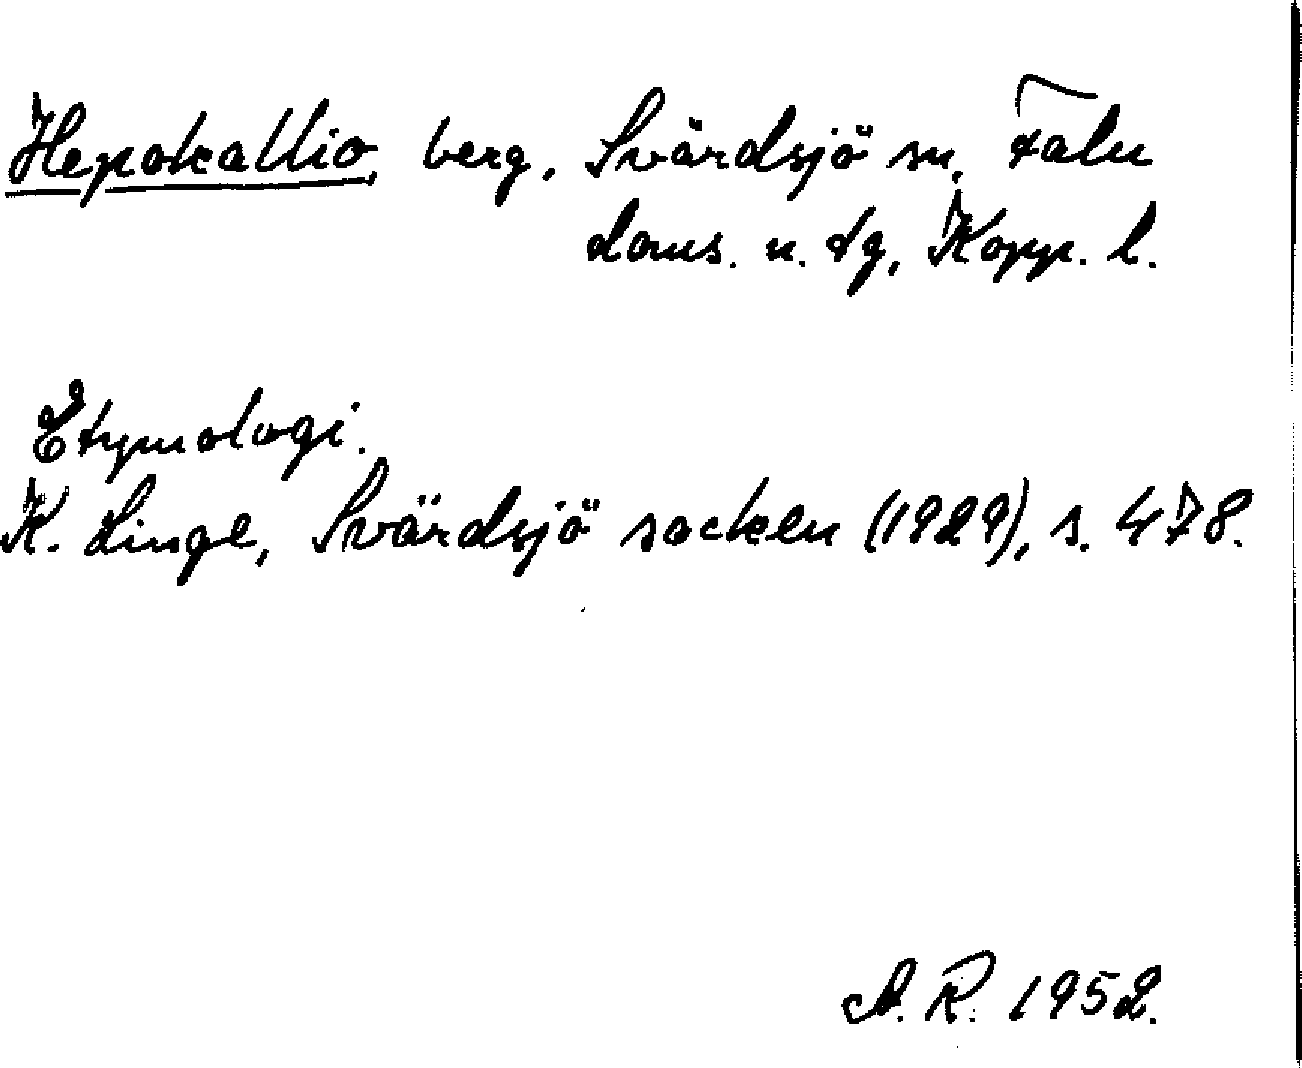 Hepokallio, berg, Svärdsjö sn, Falu
doms. n. tg, Kopp. l.
Etymologi.
K. Linge, Svärdsjö socken (1929), s. 478.
A. R. 1952.